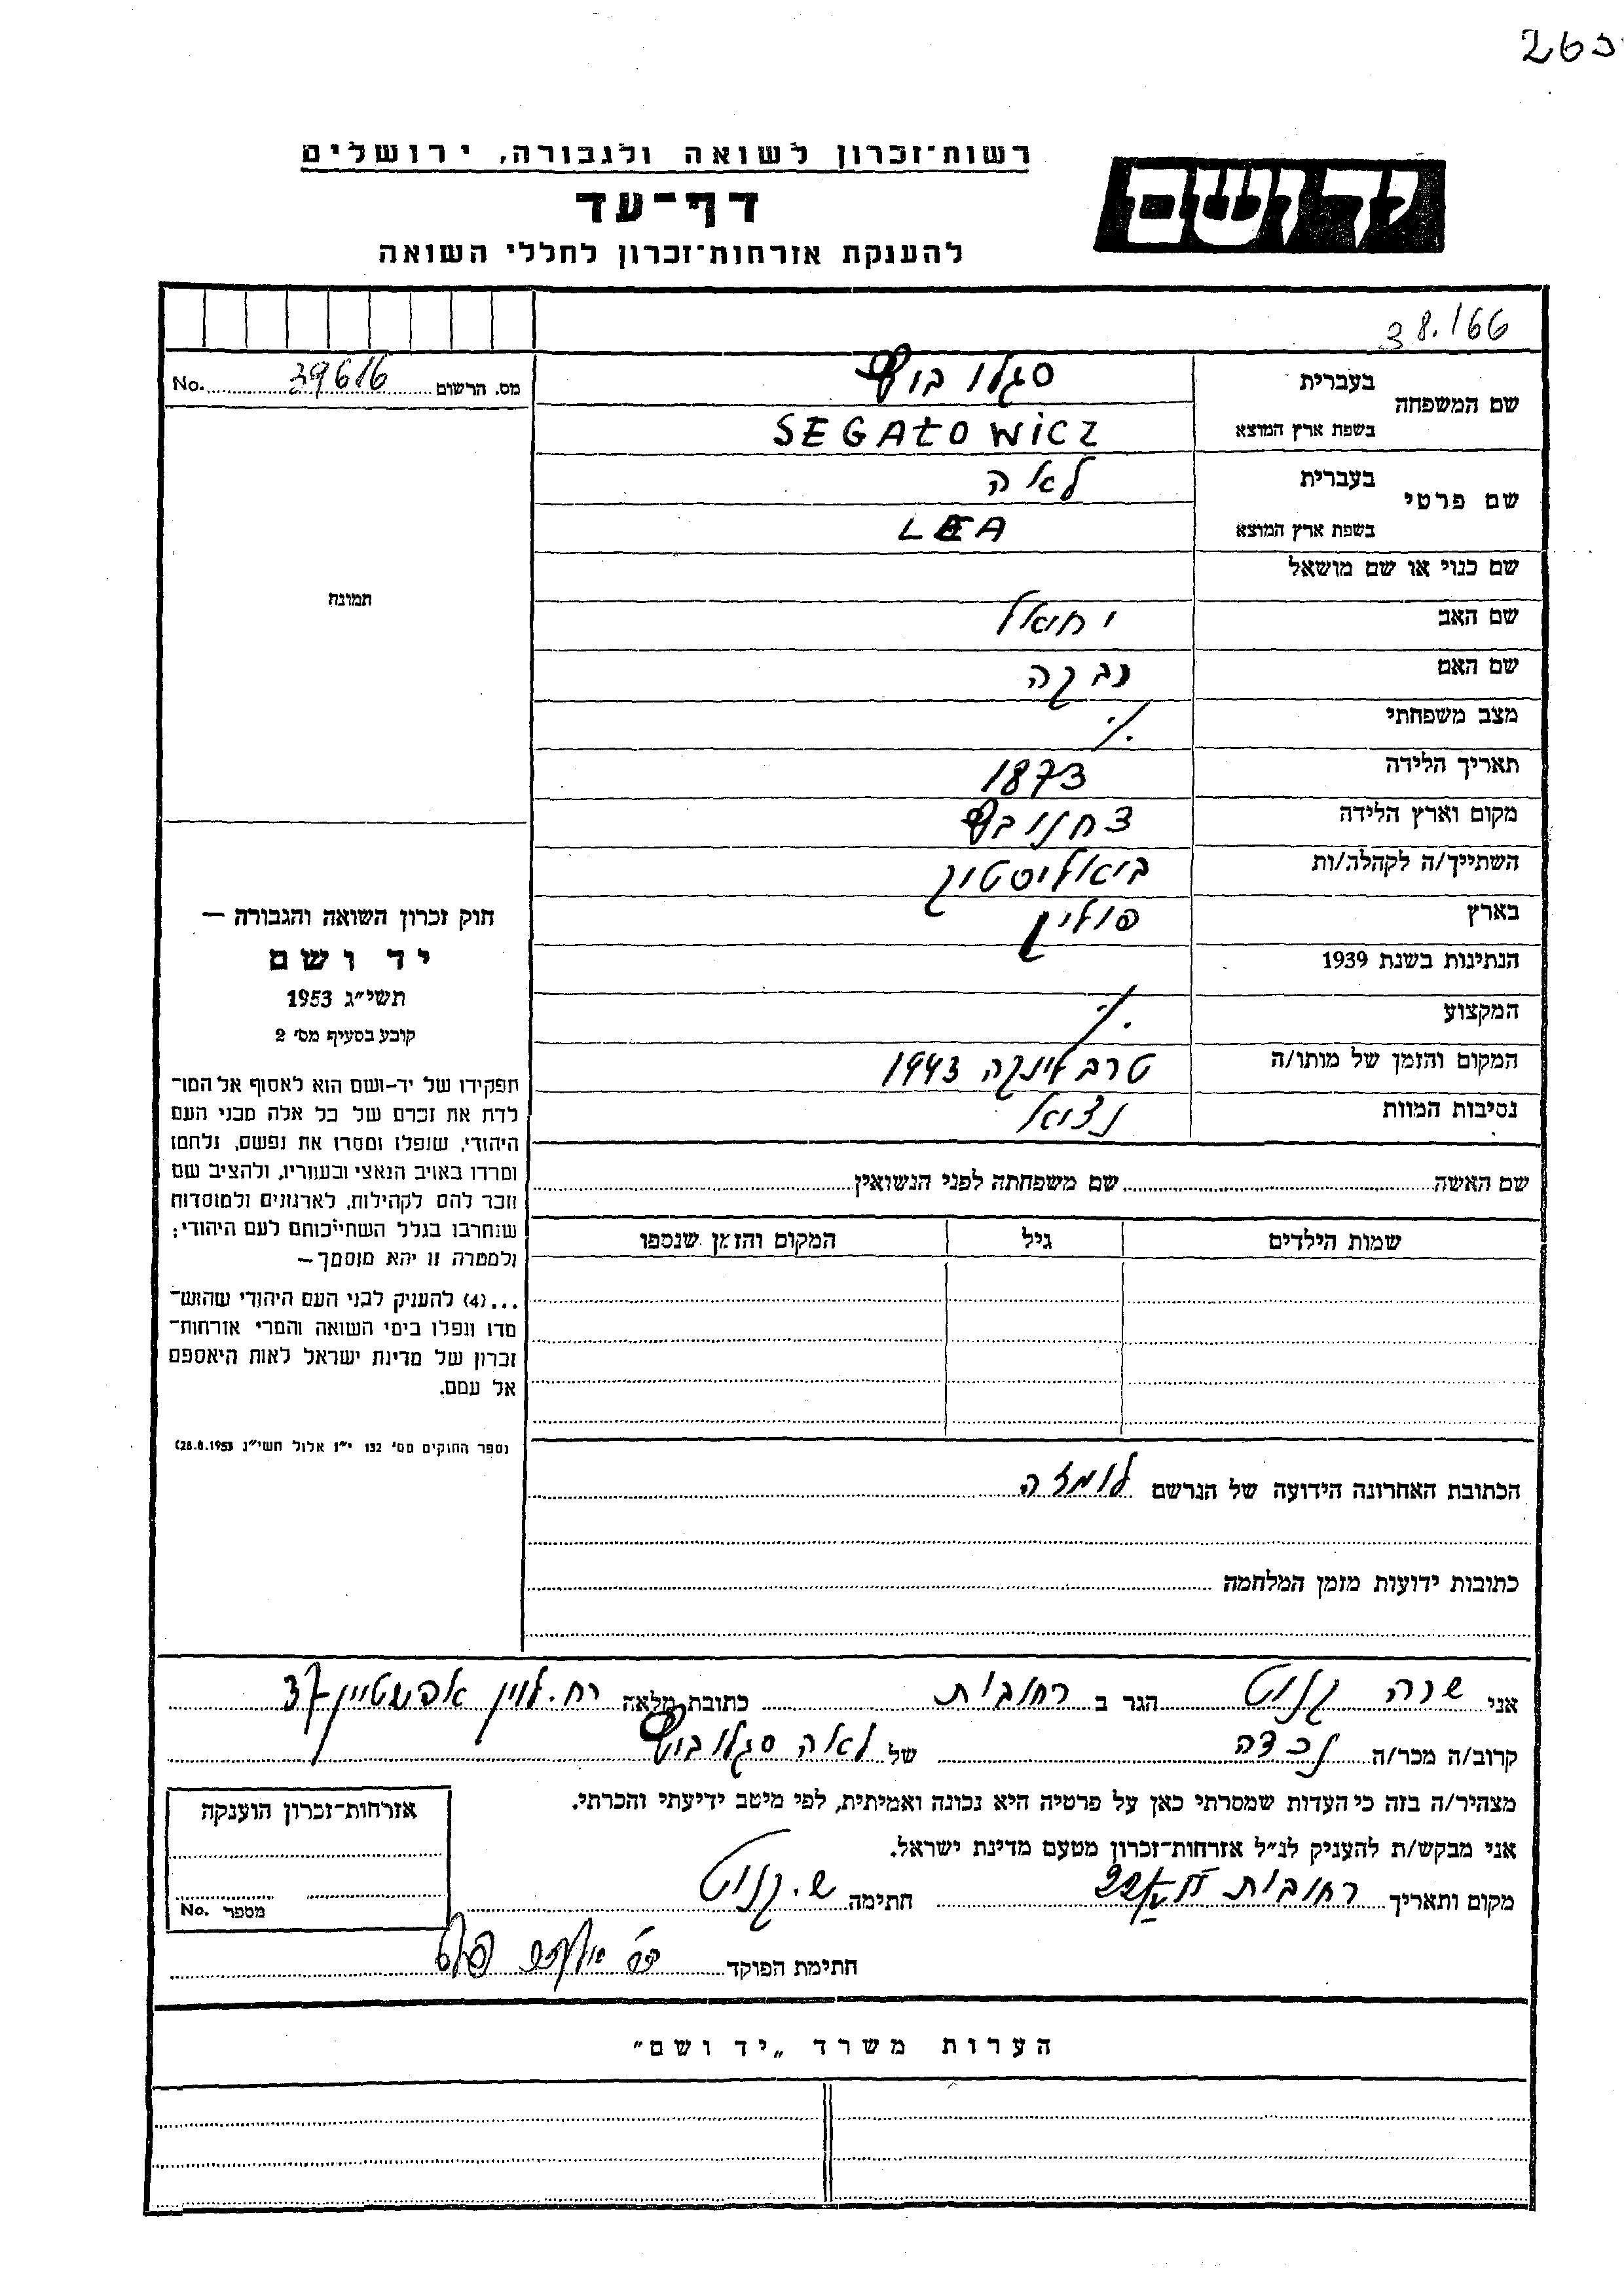 265
רשות־זכרון לשואה ולגבורה, ירושלים
דף־עד
להענקת אזרחות־זכרון לחללי השואה
יד ושם
38.166
No. 39616 מס. הרשום
שם המשפחה
בעברית סגלוביץ
בשפת ארץ המוצא SEGAŁOWICZ
שם פרטי
בעברית לאה
בשפת ארץ המוצא LEA
שם כנוי או שם מושאל
תמונה
שם האב יחיאל
שם האם רבקה
מצב משפחתי ./.
תאריך הלידה 1873
מקום וארץ הלידה צחנוביץ
השתייך/ה לקהלה/ות ביאליסטוק
בארץ פולין
הנתינות בשנת 1939
המקצוע ./.
המקום והזמן של מותו/ה טרבלינקה 1943
נסיבות המוות
שם האשה שם משפחתה לפני הנשואין
שמות הילדים גיל המקום והזמן שנספו
חוק זכרון השואה והגבורה —
יד ושם
תשי״ג 1953
קובע בסעיף מס׳ 2
תפקידו של יד-ושם הוא לאסוף אל המו־
לדת את זכרם של כל אלה מבני העם
היהודי, שנפלו ומסרו את נפשם, נלחמו
ומרדו באויב הנאצי ובעוזריו, ולהציב שם
וזכר להם לקהילות, לארגונים ולמוסדות
שנחרבו בגלל השתייכותם לעם היהודי;
ולמטרה זו יהא מוסמך —
...(4) להעניק לבני העם היהודי שהוש־
מדו ונפלו בימי השואה והמרי אזרחות־
זכרון של מדינת ישראל לאות היאספם
אל עמם.
(ספר החוקים מס׳ 132 י״ז אלול תשי״ג 28.8.1953)
הכתובת האחרונה הידועה של הנרשם לומזה
כתובות ידועות מזמן המלחמה
אני שרה הגר ב רחובות כתובת מלאה רח. לוין אפשטיין 37
קרוב/ה מכר/ה נכדה של לאה סגלוביץ
מצהיר/ה בזה כי העדות שמסרתי כאן על פרטיה היא נכונה ואמיתית, לפי מיטב ידיעתי והכרתי.
אני מבקש/ת להעניק לנ״ל אזרחות־זכרון מטעם מדינת ישראל.
מקום ותאריך רחובות חתימה
חתימת הפוקד
אזרחות־זכרון הוענקה
No. מספר
הערות משרד „יד ושם״